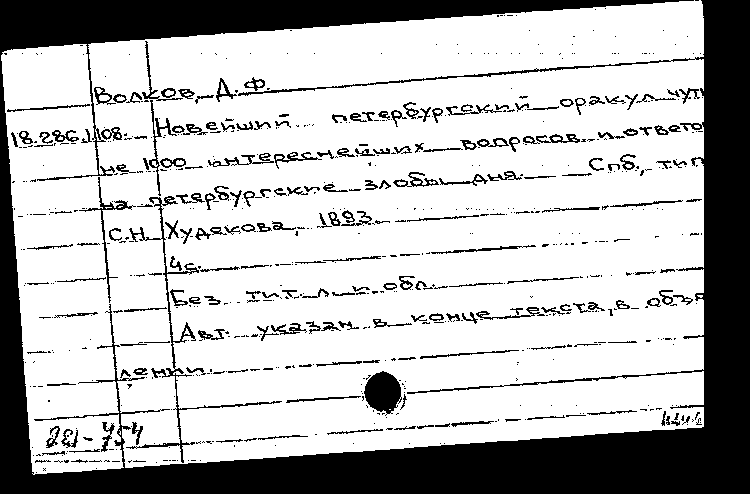 Волков, Д. Ф.
18.286.1.108. Новейший петербургский оракул чут
не 1000 интереснейших вопросов и ответо
на петербургские злобы дня. Спб., тип
С.Н. Худекова, 1893.
4с.
Без тит. л. и обл.
Авт. указан в конце текста, в объя
лении.
281-754